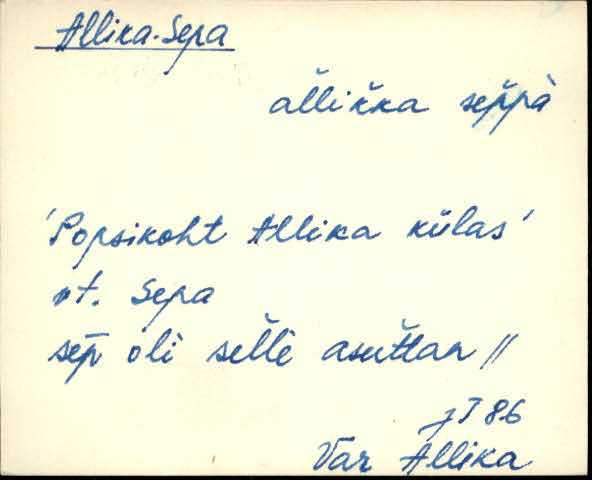 Allika-Sepa
al̆likka sep̆pà
'Popsikoht Allika külas'
vt. Sepa
sep̄ oli selle asut̆tar //
J I 86
Var Allika